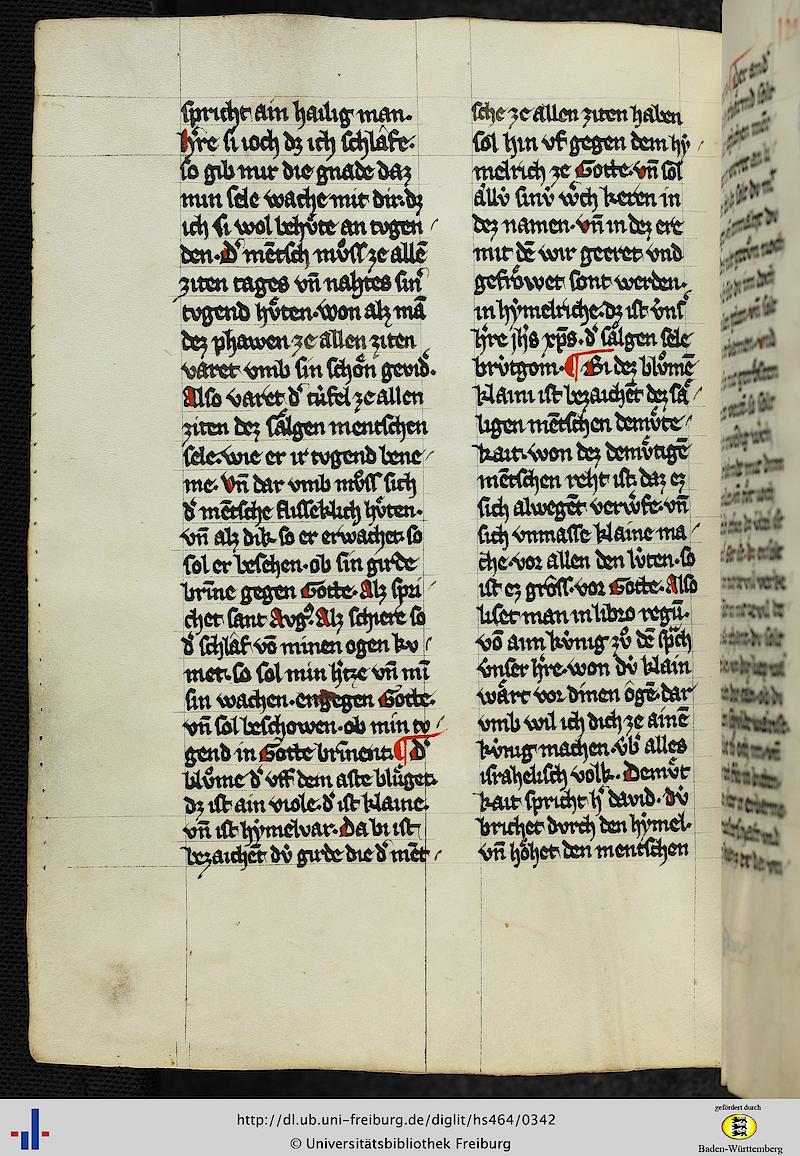 spricht ain hailig man.
h're si ioch dz ich schlaͮfe.
so gib mir die gnade daz
min sele wache mit dir. dz
ich si wol behvͤte an tvgen
den. D' mētsch mvͦss ze allē
ziten tages vn̄ nahtes sin'
tvgend hvͤten. won alz mā
dez phawen ze allen ziten
varet vmb sin schoͤn gevid'.
Also varet d' tûfel ze allen
ziten dez saͤlgen mentschen
sele. wie er ir tvgend bene
me. Vn̄ dar vmb mvͦss sich
d' mētsche flisseklich hvͤten.
vn̄ alz dik so er erwachet. so
sol er besehen. ob sin girde
brīne gegen Gotte. Alz spri
chet sant Avg9. Alz schiere so
d' schlaͮf vō minen ogen kv
met. so sol min h'tze vn̄ mī
sin wachen. engegen Gotte.
vn̄ sol beschowen. ob min tv
gend in Gotte brīnent. ¶ D'
blvͦme d' vff dem aste blvͤget.
dz ist ain viole. d' ist klaine.
vn̄ ist hẏmelvar. Da bi ist
bezaichēt dv̂ girde die d' mēt
sche ze allen ziten haben
sol hin vf gegen dem hẏ
melrich ze Gotte. vn̄ sol
aͤllv̂ sinv̂ w'ch keren in
dez namen. vn̄ in dez ere
mit dē wir geeret vnd
gefroͤwet sont werden.
in hẏmelriche. dz ist v̂ns'
h're jh's xp̄s. d' saͤlgen sele
brv̂tgom. ¶ Bi dez blvͦmē
klaini ist bezaichēt dez saͤ
ligen mētschen demvͤte
kait. won dez demvͤtigē
mētschen reht ist. daz ez
sich alwegēt verw'fe. vn̄
sich vnmasse klaine ma
che. vor allen den lv̂ten. so
ist ez groͤss. vor Gotte. Also
liset man in libro regū.
vō aim kv̂nig zvͦ dē sp̄ch
v̂nser h're. won dv̂ klain
waͤrt vor dinen ôgē. dar
vmb wil ich dich ze ainē
kv̂nig machen. v̂b' alles
israhelisch volk. Demvͤt
kait spricht h' david. dv̂
brichet dvrch den hẏmel.
vn̄ hoͤhet den mentschen
http://dl.ub.uni-freiburg.de/diglit/hs464/0342
© Universitätsbibliothek Freiburg
gefördert durch
Baden-Württemberg